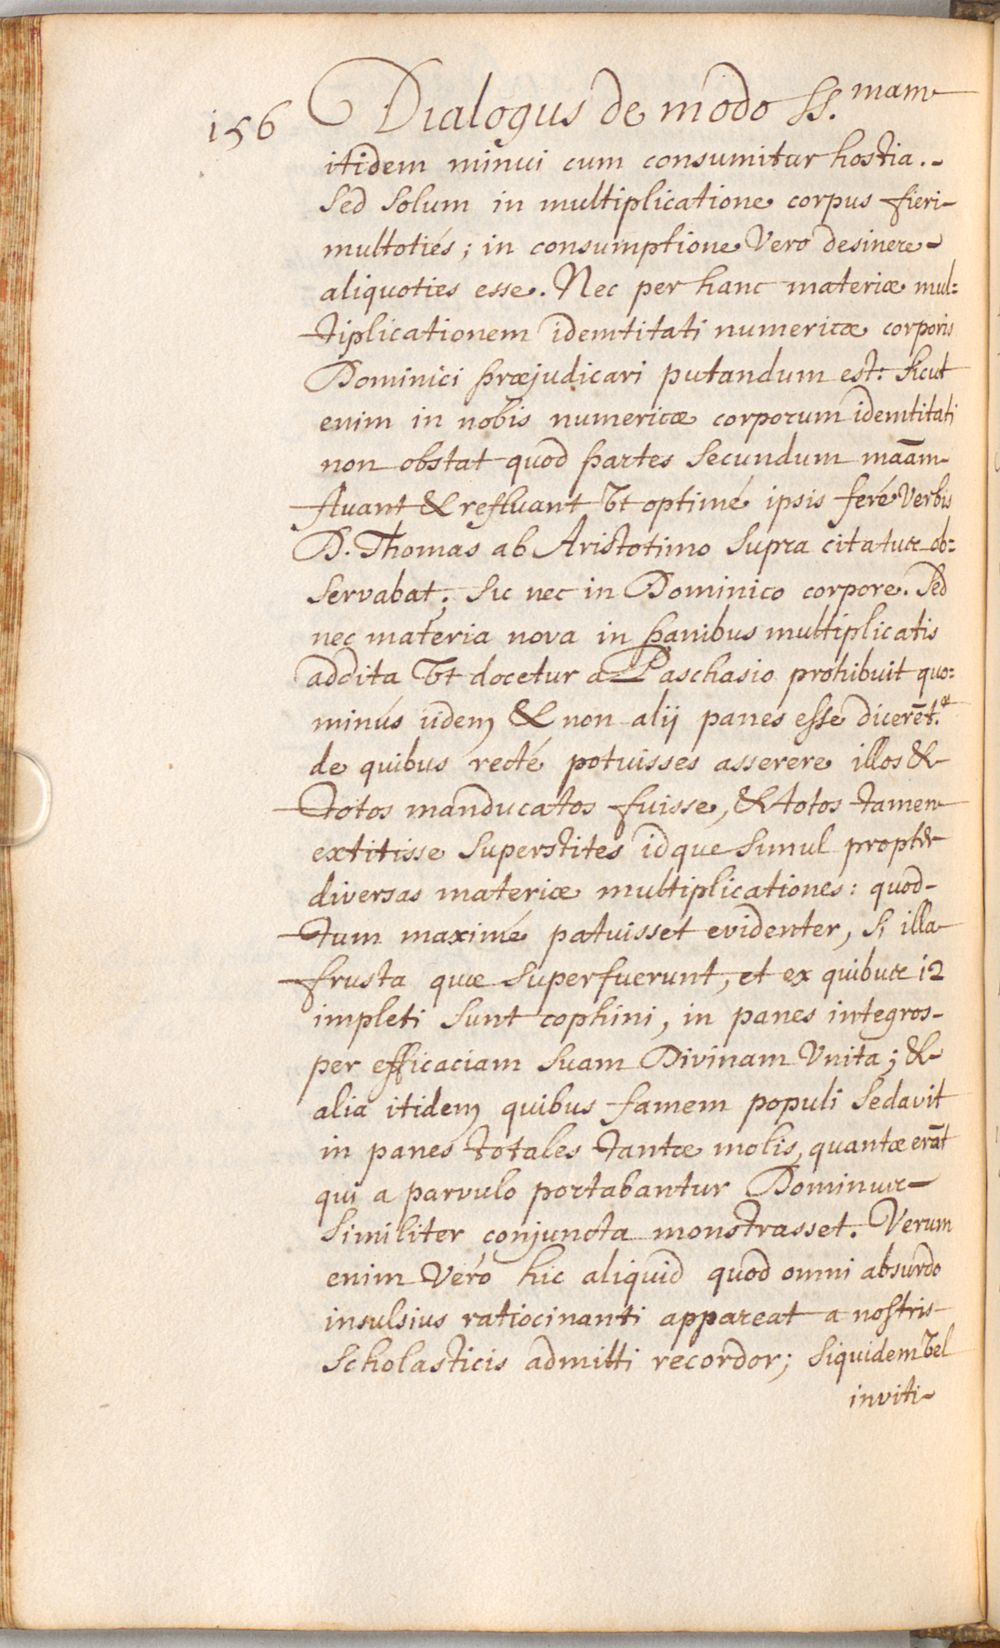 156 Dialogus de modo SS.mam
itidem minui cum consumitur hostia.
Sed Solum in multiplicatione corpus fieri
multotiés; in consumptione Vero desinere
aliquoties esse. Nec per hanc materiæ mul:
tiplicationem idemtitati numericæ corporis
Dominici præjudicari putandum est: Sicut
enim in nobis numericæ corporum idemtitati
non obstat quod partes Secundum maãm
fluant & refluant Vt optimé ipsis feré Verbis
D. Thomas ab Aristotimo Supra citatus ob:
Servabat; Sic nec in Dominico corpore. Sed
nec materia nova in panibus multiplicatis
addita Vt docetur a Paschasio prohibuit quo:
minús iidem & non alij panes esse dicerẽt. &
de quibus recté potuisses asserere illos &
totos manducatos fuisse, & totos tamen
extitisse Superstites idque Simul propter
diversas materiæ multiplicationes: quod
tum maximé patuisset evidenter, Si illa
frusta quæ Superfuerunt, et ex quibus 12
impleti Sunt cophini, in panes integros
per efficaciam Suam Divinam Vnita; &
alia itidem quibus famem populi Sedavit
in panes totales tantæ molis, quantæ erãt
qui a parvulo portabantur Dominus
Similiter conjuncta monstrasset. Verum
enim Veró hic aliquid quod omni absurdo
insulsius ratiocinanti appareat a nostris
Scholasticis admitti recordor; Siquidem Vel
inviti